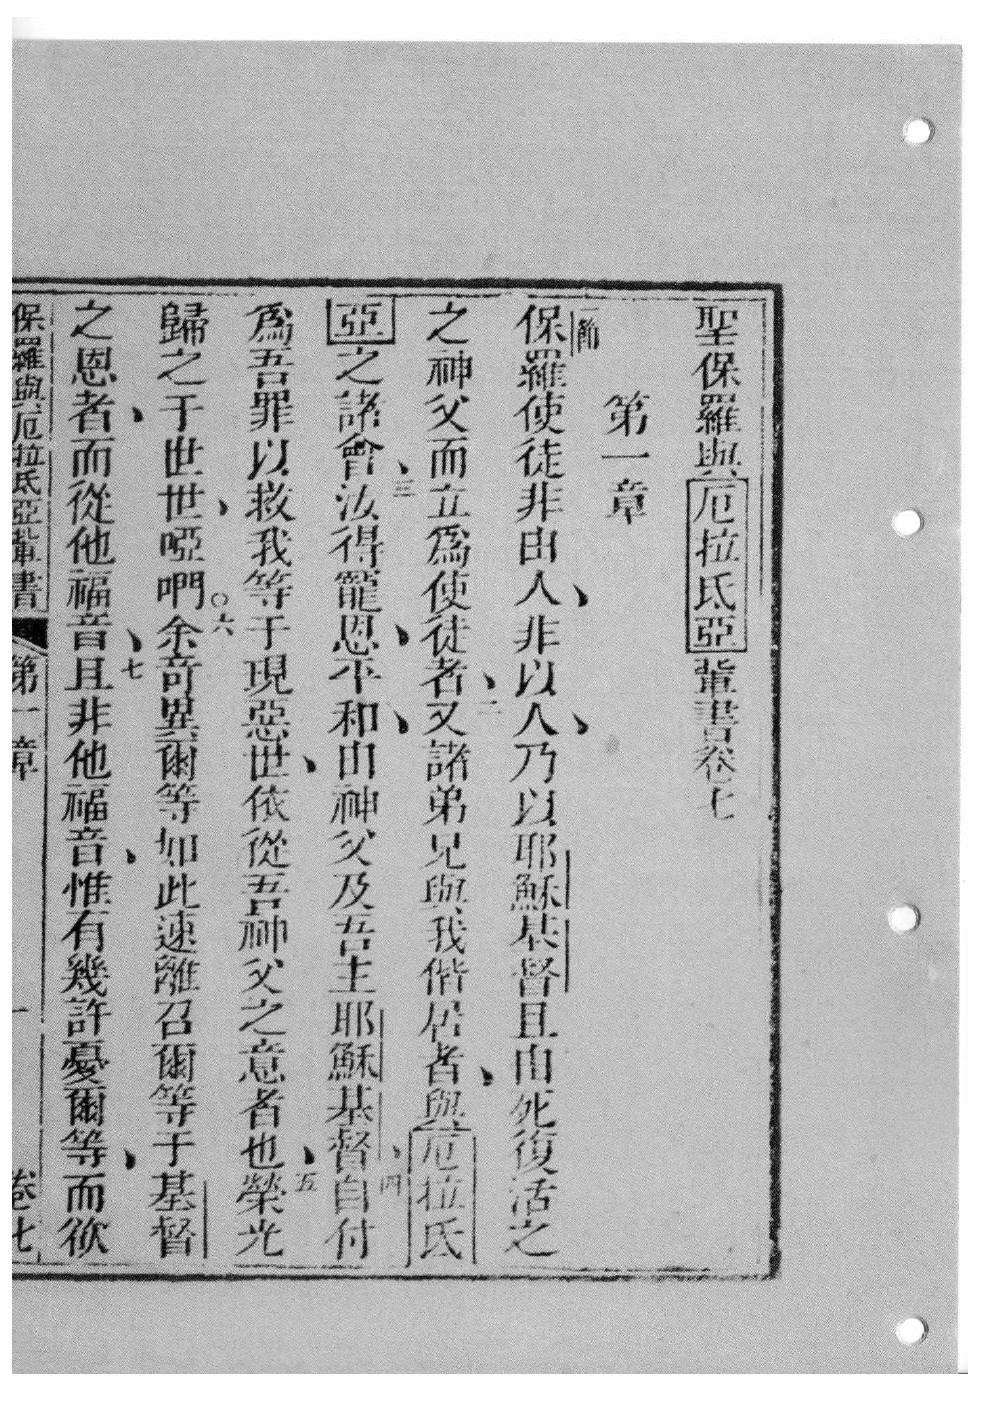 聖保羅與厄拉氐亞輩書卷七
第一章
一節保羅使徒非由人、非以人、乃以耶穌基督且由死復活之
之神父而立爲使徒者、二又諸弟兄與我偕居者、與厄拉氐
亞之諸會、三汝得寵恩、平和、由神父及吾主耶穌基督、四自付
爲吾罪以救我等于現惡世、依從吾神父之意者也、五榮光
歸之于世世、啞呷。六余竒異爾等如此速離召爾等于基督
之恩者、而從他福音、七且非他福音、惟有幾許憂爾等、而欲
保羅與厄拉氐亞輩書 第一章 一 卷七